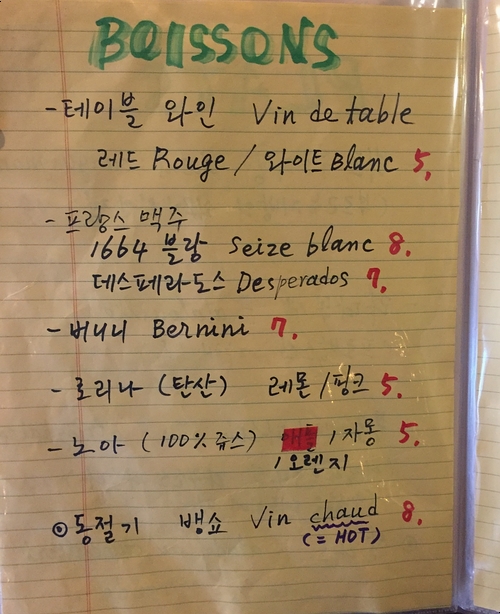 BOISSONS
- 테이블 와인 Vin de table
레드 Rouge / 와이트 Blanc 5,
- 프랑스 맥주
1664 블랑 Seize blanc 8.
데스페라도스 Desperados 7.
- 버니니 Bernini 7.
- 로리나 (탄산) 레몬 / 핑크 5.
- 노아 (100% 쥬스) / 자몽 5.
/ 오렌지
◎ 동절기 뱅쇼 Vin chaud 8.
(= HOT)